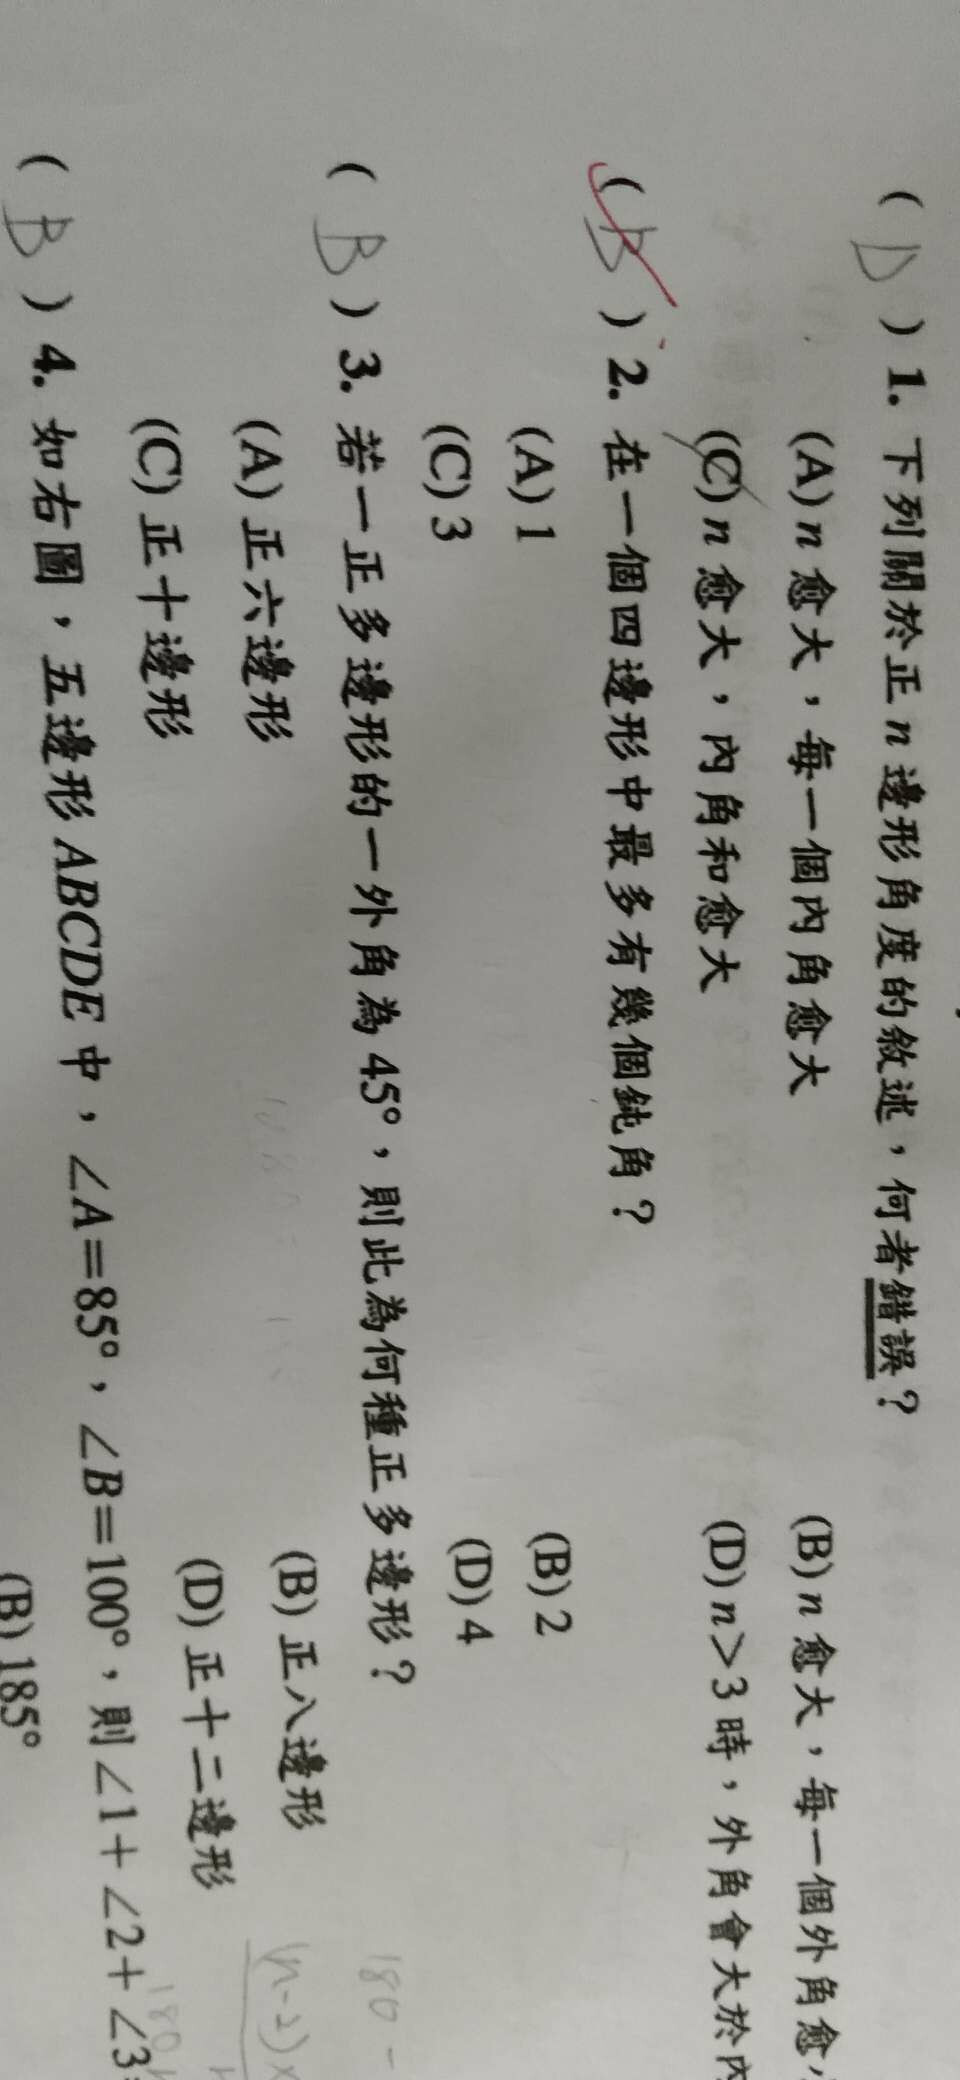 ( D ) 1. 下列關於正 n 邊形角度的敘述，何者錯誤？
(A) n 愈大，每一個內角愈大 (B) n 愈大，每一個外角愈小
(C) n 愈大，內角和愈大 (D) n＞3 時，外角會大於內
( B ) 2. 在一個四邊形中最多有幾個鈍角？
(A) 1 (B) 2
(C) 3 (D) 4
( B ) 3. 若一正多邊形的一外角為 45°，則此為何種正多邊形？
(A) 正六邊形 (B) 正八邊形
(C) 正十邊形 (D) 正十二邊形
180 -
(n-2)×
( B ) 4. 如右圖，五邊形 ABCDE 中，∠A＝85°，∠B＝100°，則∠1＋∠2＋∠3＝
(B) 185°